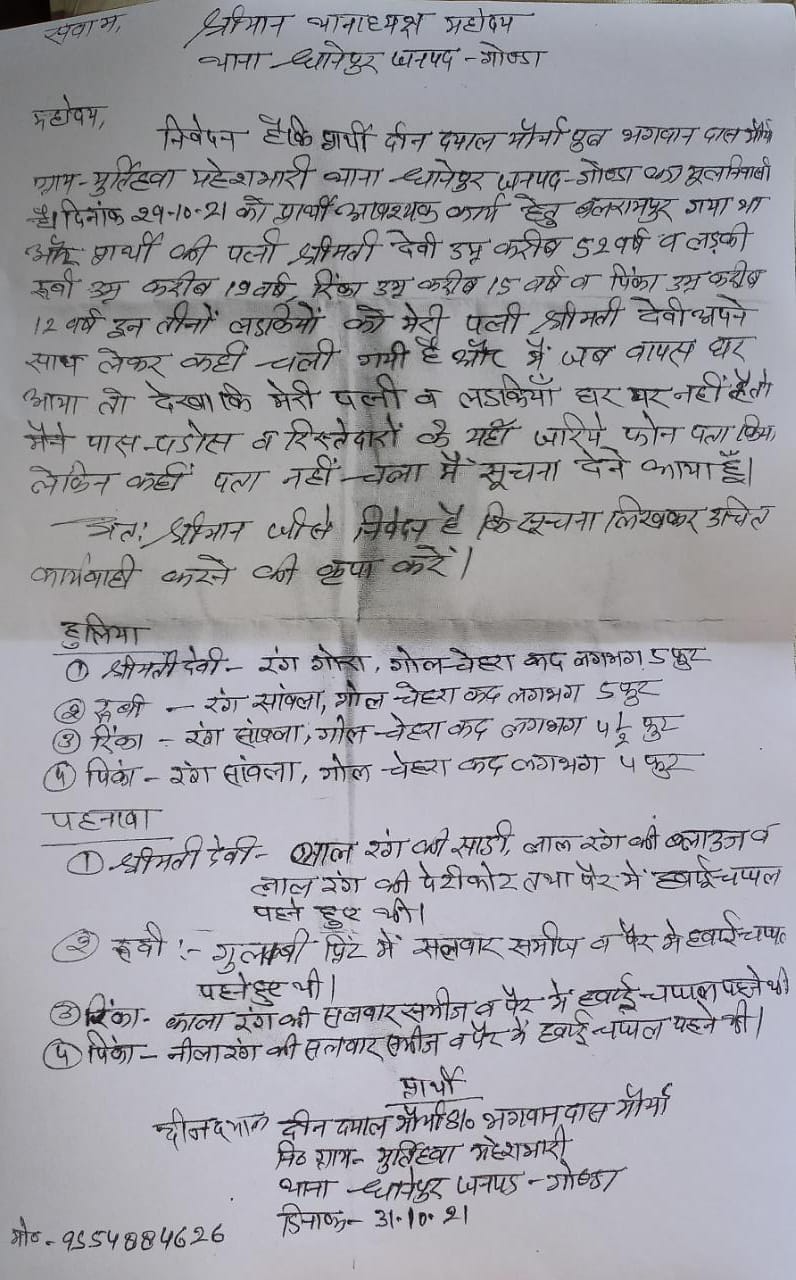 सेवा में,
श्रीमान थानाध्यक्ष महोदय
थाना धानेपुर जनपद - गोण्डा
महोदय,
निवेदन है कि प्रार्थी दीन दयाल मौर्या पुत्र भगवान दास मौर्य
ग्राम - मुर्तिहवा महेशभारी थाना धानेपुर जनपद - गोण्डा का मूल निवासी
है। दिनांक 29-10-21 को प्रार्थी आवश्यक कार्य हेतु बलरामपुर गया था
और प्रार्थी की पत्नी श्रीमती देवी उम्र करीब 52 वर्ष व लड़की
रूबी उम्र करीब 19 वर्ष, रिंका उम्र करीब 15 वर्ष व पिंका उम्र करीब
12 वर्ष इन तीनों लडकियों को मेरी पत्नी श्रीमती देवी अपने
साथ लेकर कहीं चली गयी है और मैं जब वापस घर
आया तो देखा कि मेरी पत्नी व लडकियाँ घर पर नहीं है तो
मैने पास-पडोस व रिस्तेदारों के यहाँ जरिये फोन पता किया,
लेकिन कहीं पता नहीं चला मैं सूचना देने आया हूँ।
अतः श्रीमान जी से निवेदन है कि सूचना लिखकर उचित
कार्यवाही करने की कृपा करें।
हुलिया
① श्रीमती देवी - रंग गोरा, गोल चेहरा कद लगभग 5 फुट
② रूबी - रंग सांवला, गोल चेहरा कद लगभग 5 फुट
③ रिंका - रंग सांवला, गोल चेहरा कद लगभग 4½ फुट
④ पिंका - रंग सांवला, गोल चेहरा कद लगभग 4 फुट
पहनावा
① श्रीमती देवी - लाल रंग की साडी, लाल रंग की ब्लाउज व
लाल रंग की पेटीकोट तथा पैर में हवाई चप्पल
पहने हुए थी।
② रूबी :- गुलाबी प्रिंट में सलवार समीज व पैर मे हवाई चप्पल
पहने हुए थी।
③ रिंका - काला रंग की सलवार समीज व पैर में हवाई चप्पल पहने थी
④ पिंका - नीला रंग की सलवार समीज व पैर में हवाई चप्पल पहने थी।
प्रार्थी
दीनदयाल दीन दयाल मौर्या S/o भगवानदास मौर्या
नि० ग्राम - मुर्तिहवा महेशभारी
थाना धानेपुर जनपद - गोण्डा
दिनांक - 31.10.21
मो० - 9554884626